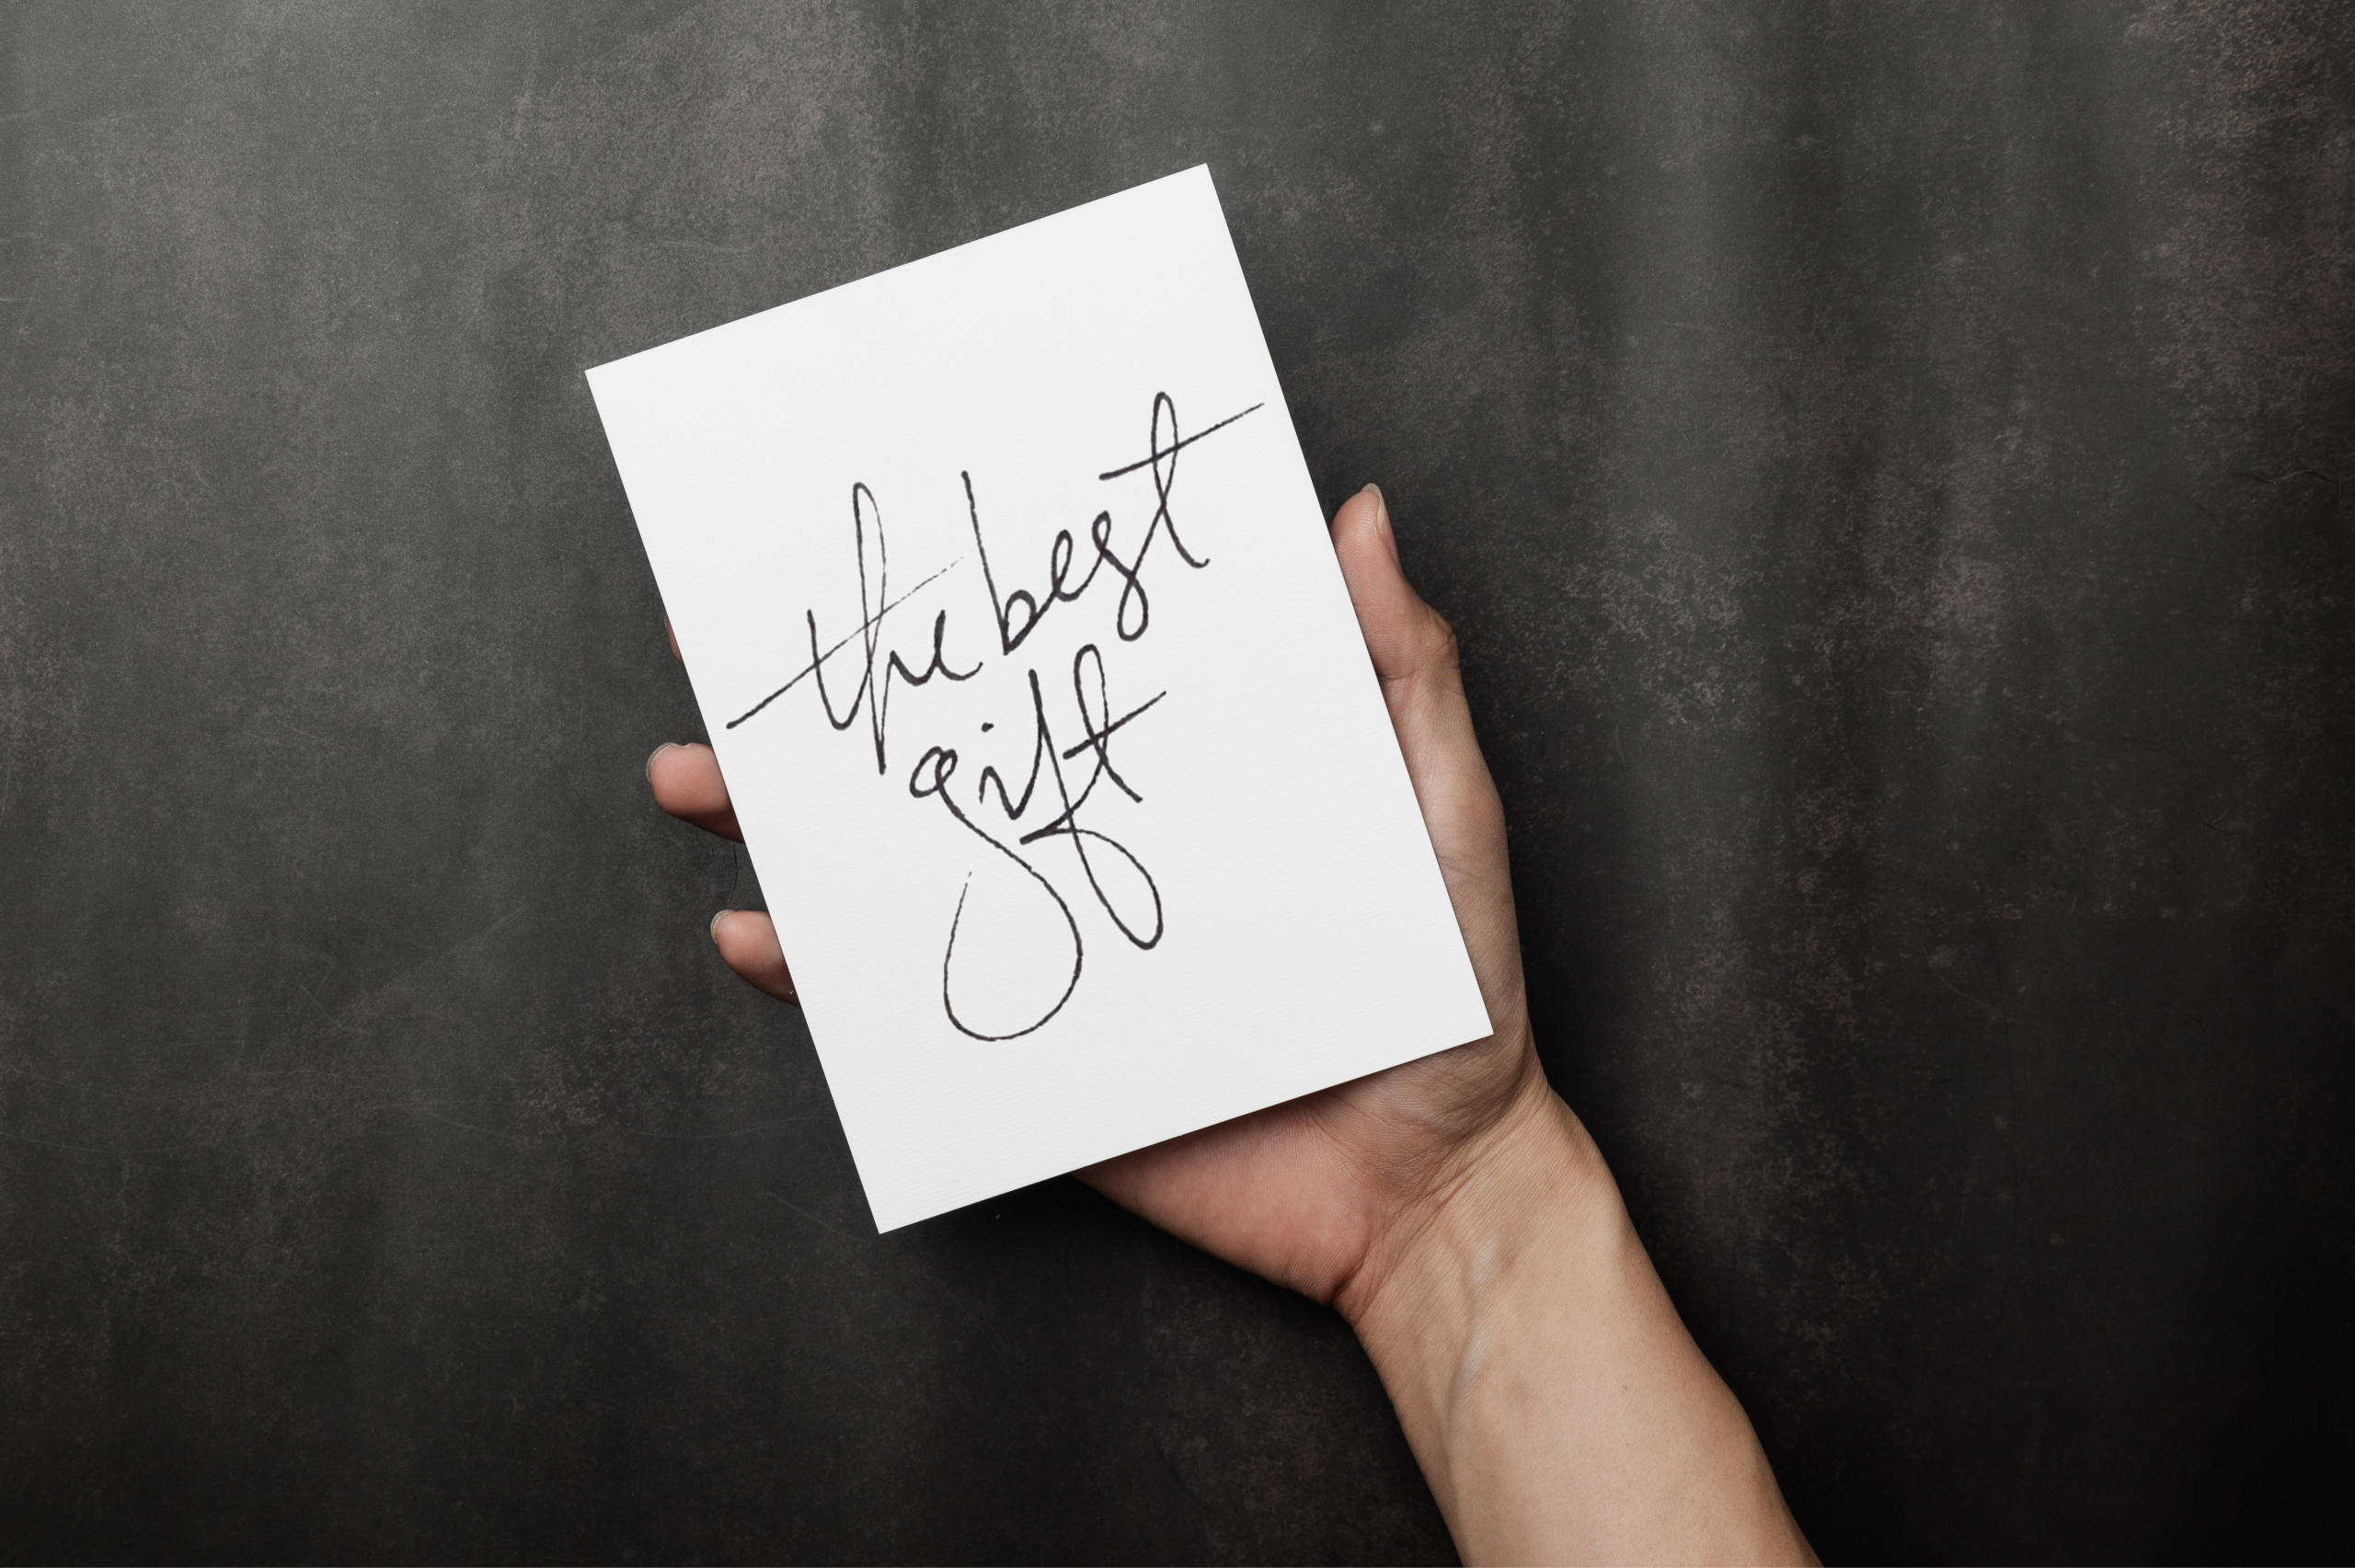 the best
gift